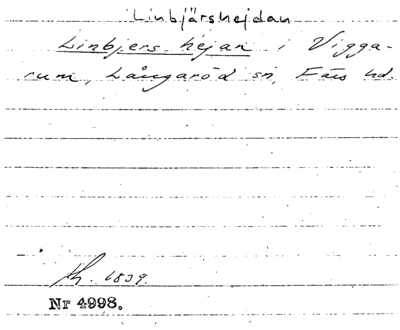 Linbjärshejdan
Linbjers hejan i Vigga-
rum, Långaröd sn, Färs hd.
1839.
Nr 4998.